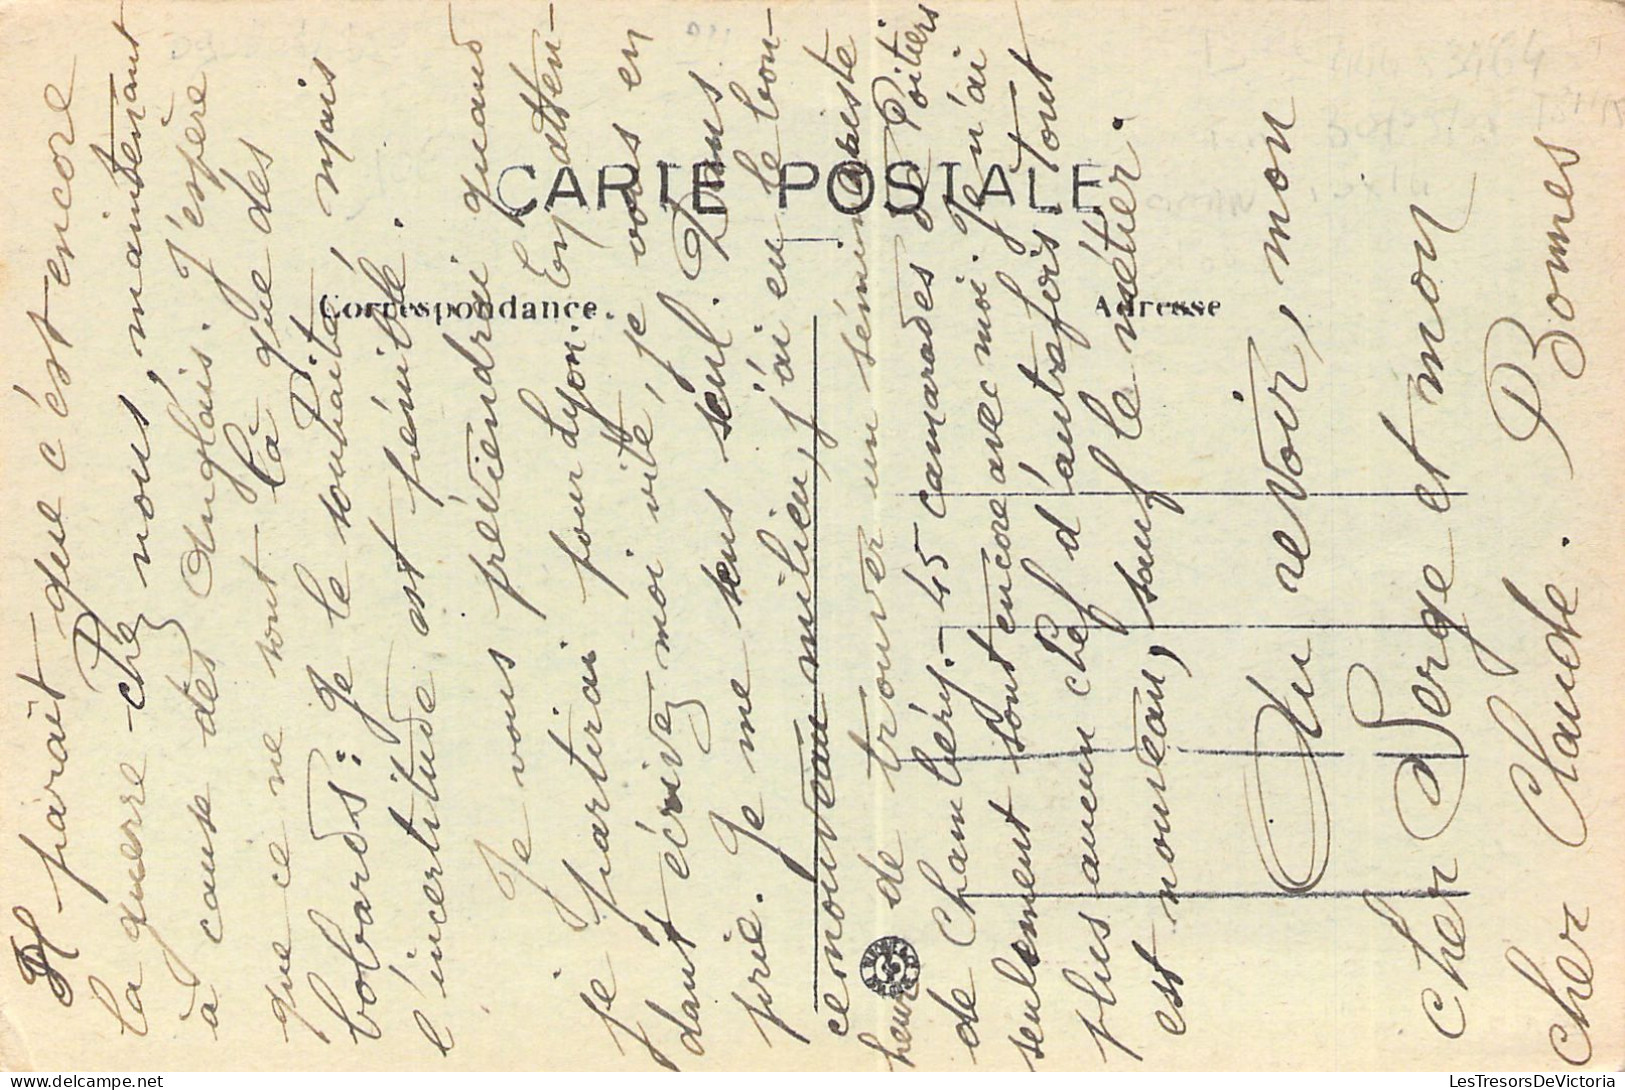 Il paraît que c'est encore
la guerre chez nous, maintenant
à cause des Anglais. J'espère
que ce ne sont là que des
bobards: Je le souhaite, mais
l'incertitude est pénible.
Je vous préviendrai quand
je partirai pour Lyon. En atten-
dant écrivez moi vite, je vous en
prie. Je me sens seul. Dans
ce nouveau milieu, j'ai eu le bon-
heur de trouver un séminariste de Poitiers
de Chambéry. - 45 camarades
seulement sont encore avec moi. Je n'ai
plus aucun chef d'autrefois. Tout
est nouveau, sauf le métier.
Au revoir, mon
cher Serge et mon
cher Claude. Bonnes
CARTE POSTALE
Correspondance.
Adresse
LesTresorsDeVictoria